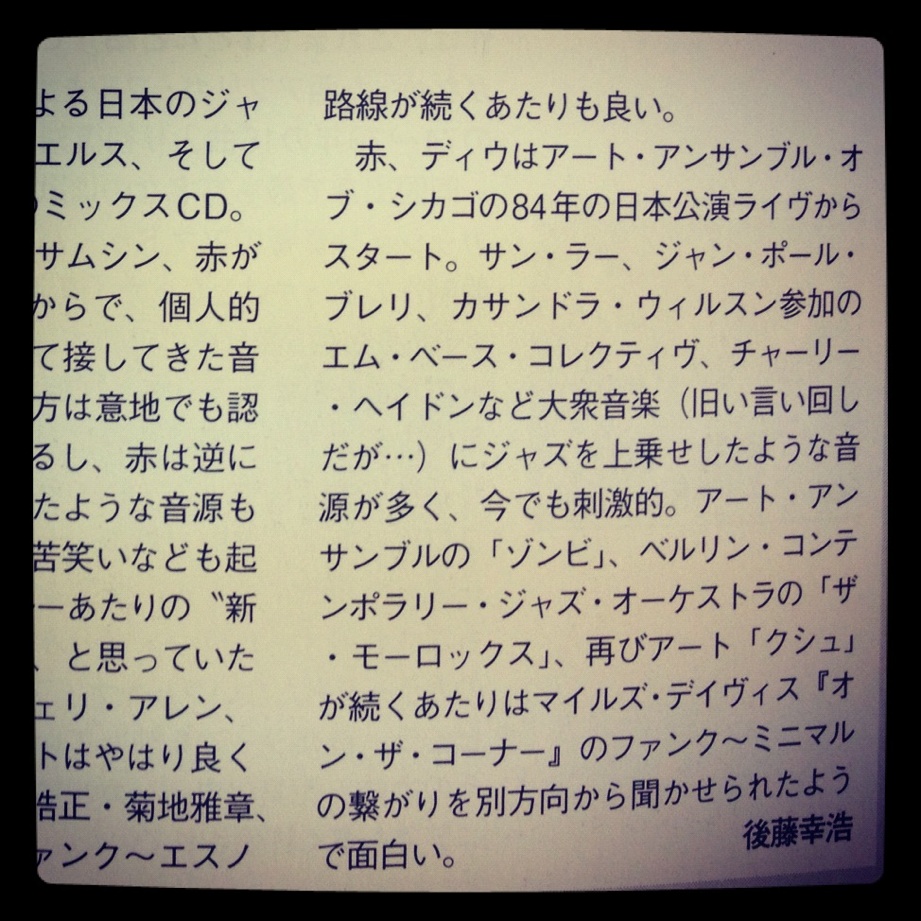 よる日本のジャ
エルス、そして
ミックスCD。
サムシン、赤が
からで、個人的
て接してきた音
方は意地でも認
るし、赤は逆に
たような音源も
苦笑いなども起
ーあたりの〝新
、と思っていた
ェリ・アレン、
トはやはり良く
浩正・菊地雅章、
ァンク〜エスノ
路線が続くあたりも良い。
赤、ディウはアート・アンサンブル・オ
ブ・シカゴの84年の日本公演ライヴから
スタート。サン・ラー、ジャン・ポール・
ブレリ、カサンドラ・ウィルスン参加の
エム・ベース・コレクティヴ、チャーリー
・ヘイドンなど大衆音楽（旧い言い回し
だが…）にジャズを上乗せしたような音
源が多く、今でも刺激的。アート・アン
サンブルの「ゾンビ」、ベルリン・コンテ
ンポラリー・ジャズ・オーケストラの「ザ
・モーロックス」、再びアート「クシュ」
が続くあたりはマイルズ・デイヴィス『オ
ン・ザ・コーナー』のファンク〜ミニマル
の繋がりを別方向から聞かせられたよう
で面白い。
後藤幸浩